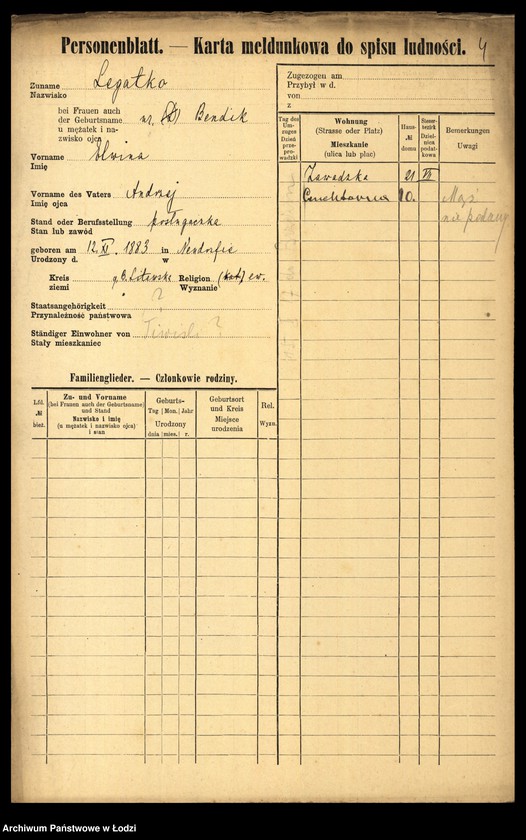 Personenblatt. — Karta meldunkowa do spisu ludności.
4
Zuname Legatko
Nazwisko
bei Frauen auch
der Geburtsname Bendik
u mężatek i na-
zwisko ojca
Vorname Elwina
Imię
Vorname des Vaters Andrzej
Imię ojca
Stand oder Berufsstellung posługaczka
Stan lub zawód
geboren am 12.XI.1883 in Neudorfie
Urodzony d. w
Kreis Religion (kat) ew.
ziemi Wyznanie
Staatsangehörigkeit ?
Przynależność państwowa
Ständiger Einwohner von ?
Stały mieszkaniec
Familienglieder. — Członkowie rodziny.
Lfd. № bież.
Zu- und Vorname
(bei Frauen auch der Geburtsname)
und Stand
Nazwisko i imię
(u mężatek i nazwisko ojca)
i stan
Geburts-
Tag | Mon. | Jahr
Urodzony
dnia | mies. | r.
Geburtsort
und Kreis
Miejsce
urodzenia
Rel.
Wyzn.
Zugezogen am
Przybył w d.
von
z
Tag des
Um-
zuges
Dzień
prze-
prowadzki
Wohnung
(Strasse oder Platz)
Mieszkanie
(ulica lub plac)
Haus-
№
domu
Steuer-
bezirk
Dzielni-
ca podat-
kowa
Bemerkungen
Uwagi
Zawadzka 21 VII
10. Mąż
nie podany
Archiwum Państwowe w Łodzi